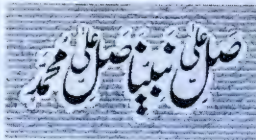 صَلِّ عَلٰی نَبِیِّنَا صَلِّ عَلٰی مُحَمَّدٍ